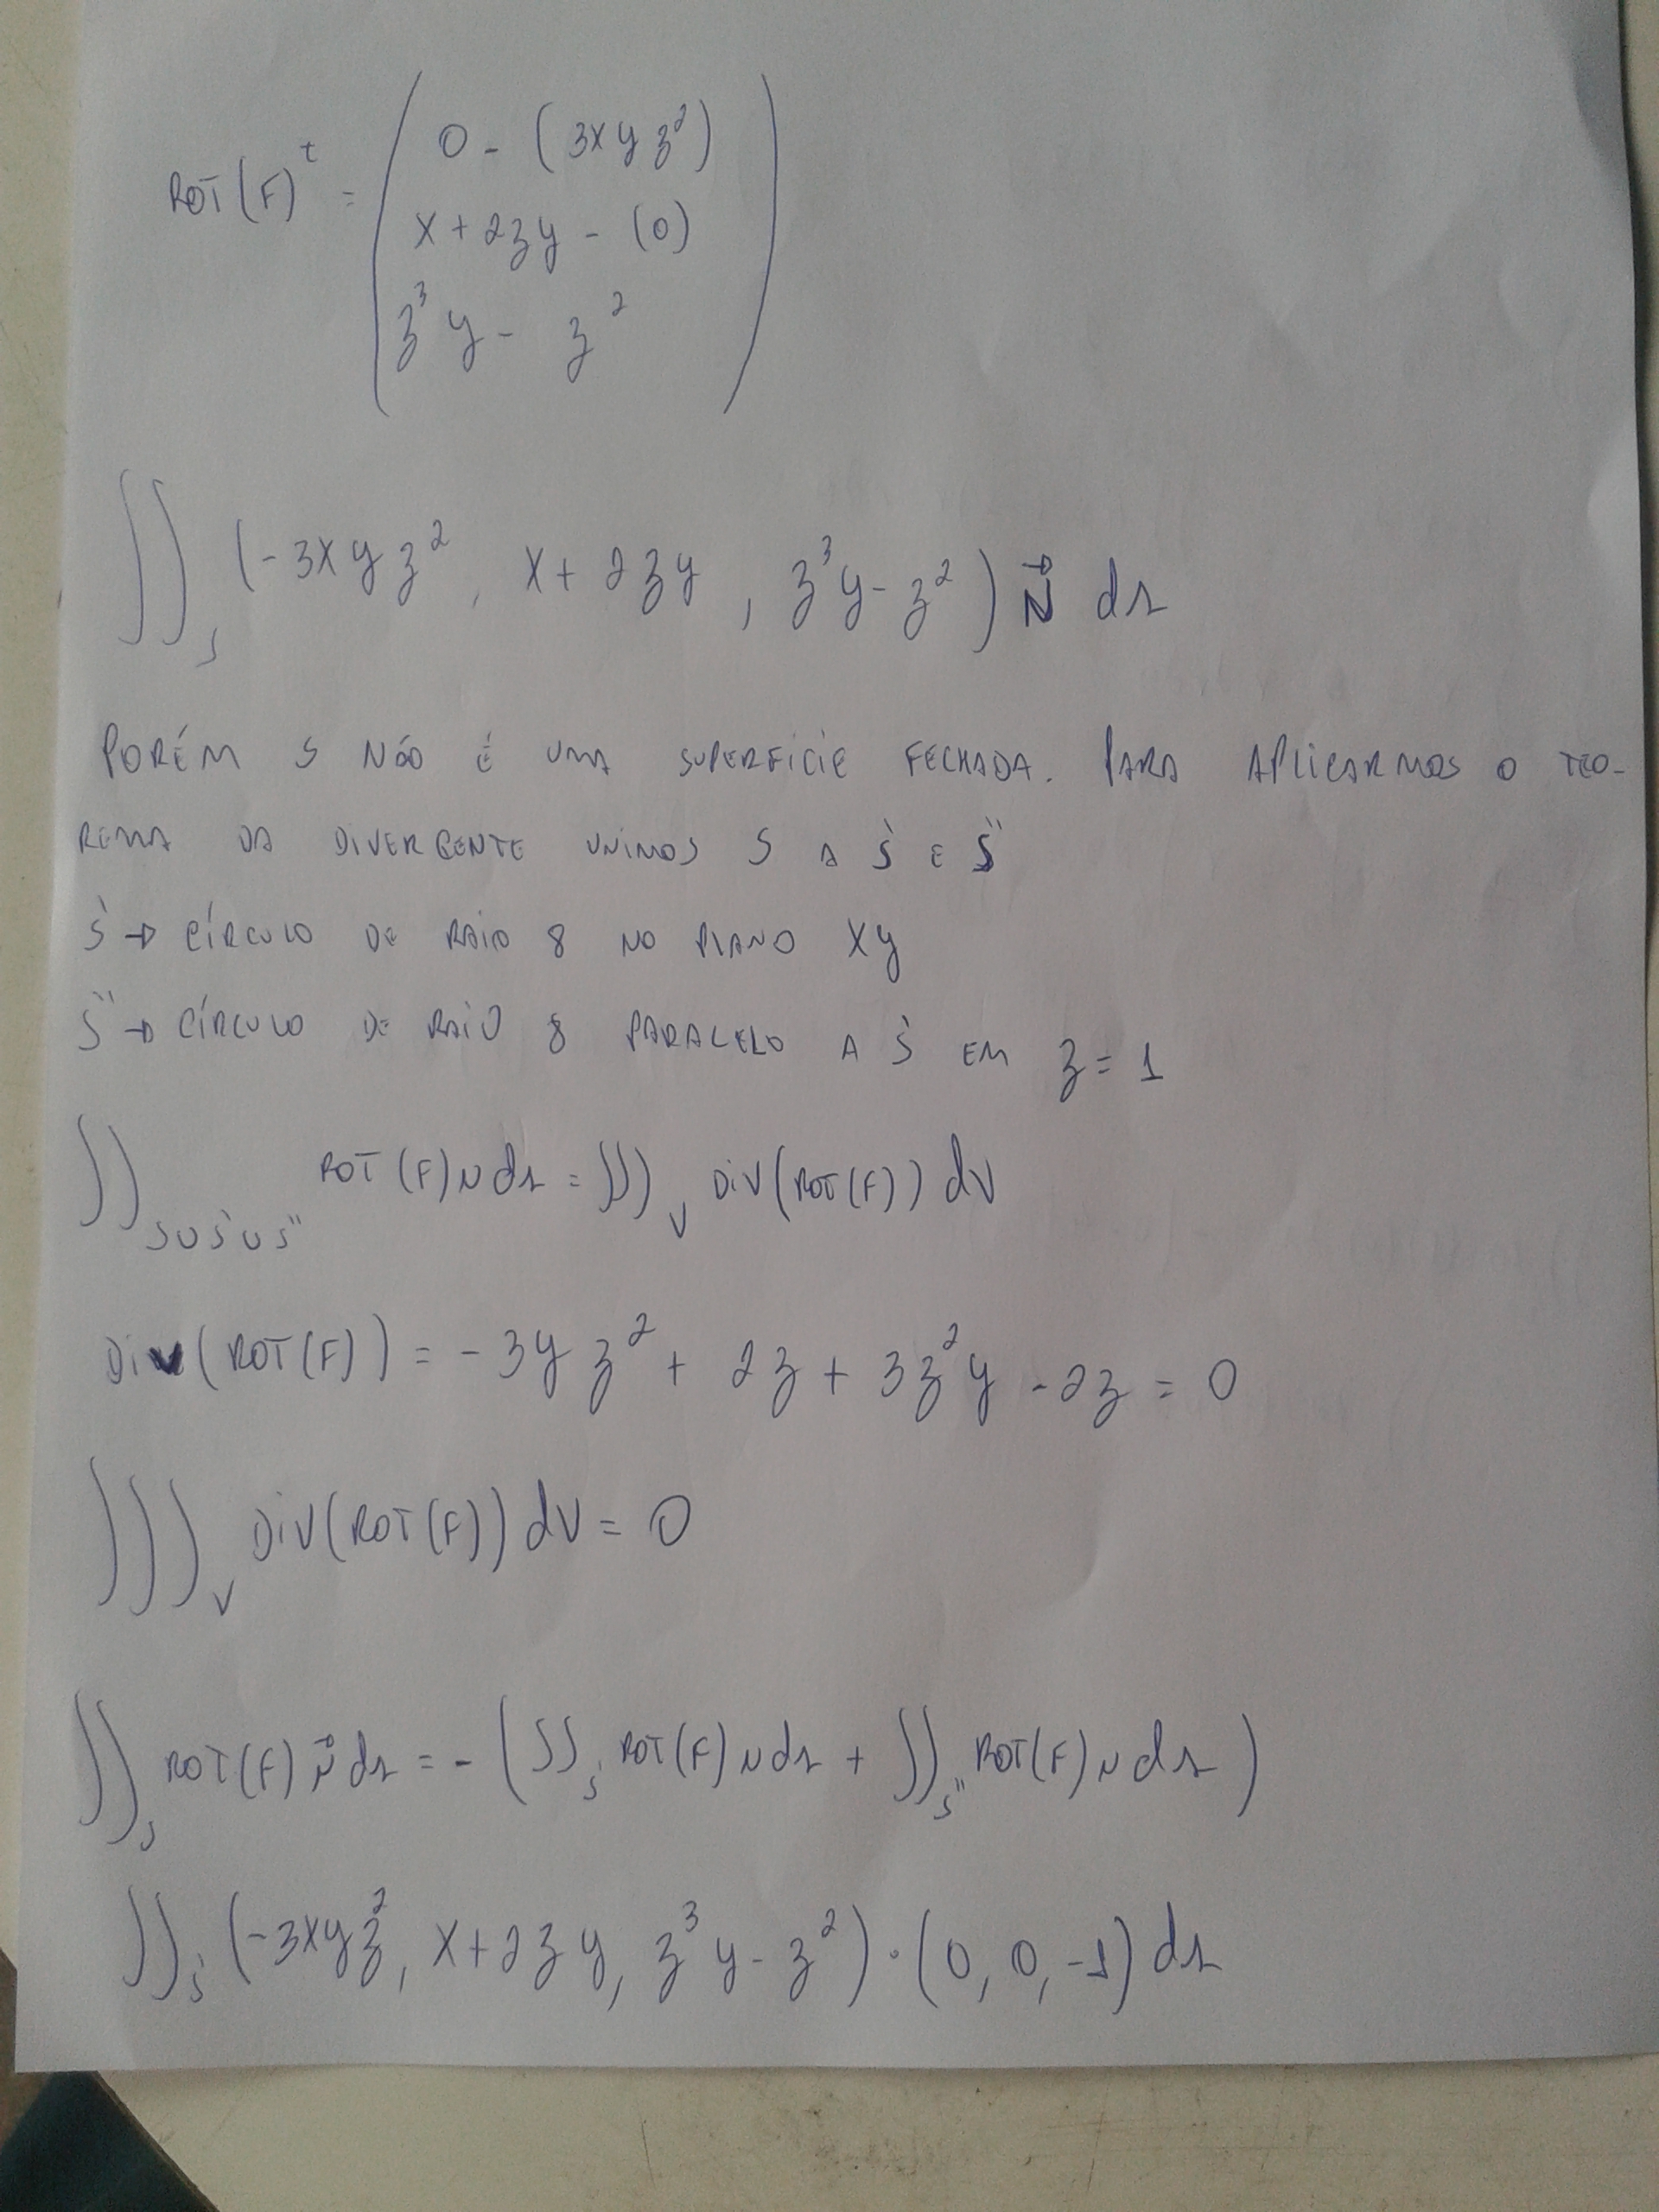 ROT(F)^t = ( 0 - (3xyz²)
x + 2zy - (0)
z³y - z² )
∬_S (-3xyz², x + 2zy, z³y - z²) N⃗ ds
PORÉM S NÃO É UMA SUPERFICIE FECHADA. PARA APLICARMOS O TEO-
REMA DA DIVERGENTE UNIMOS S A S' E S''
S' → CÍRCULO DE RAIO 8 NO PLANO XY
S'' → CÍRCULO DE RAIO 8 PARALELO A S' EM z = 1
∬_{S∪S'∪S''} ROT(F) N ds = ∭_V DIV(ROT(F)) dV
DIV(ROT(F)) = -3yz² + 2z + 3z²y - 2z = 0
∭_V DIV(ROT(F)) dV = 0
∬_S ROT(F) N⃗ ds = - (∬_{S'} ROT(F) N ds + ∬_{S''} ROT(F) N ds)
∬_{S'} (-3xyz², x + 2zy, z³y - z²) · (0, 0, -1) ds